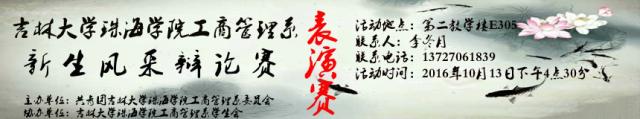 吉林大学珠海学院工商管理系
新生风采辩论赛
表演赛
主办单位：共青团吉林大学珠海学院工商管理系委员会
协办单位：吉林大学珠海学院工商管理系学生会
活动地点：第二教学楼E305
联系人：李冬月
联系电话：13727061839
活动时间：2016年10月13日下午4点30分